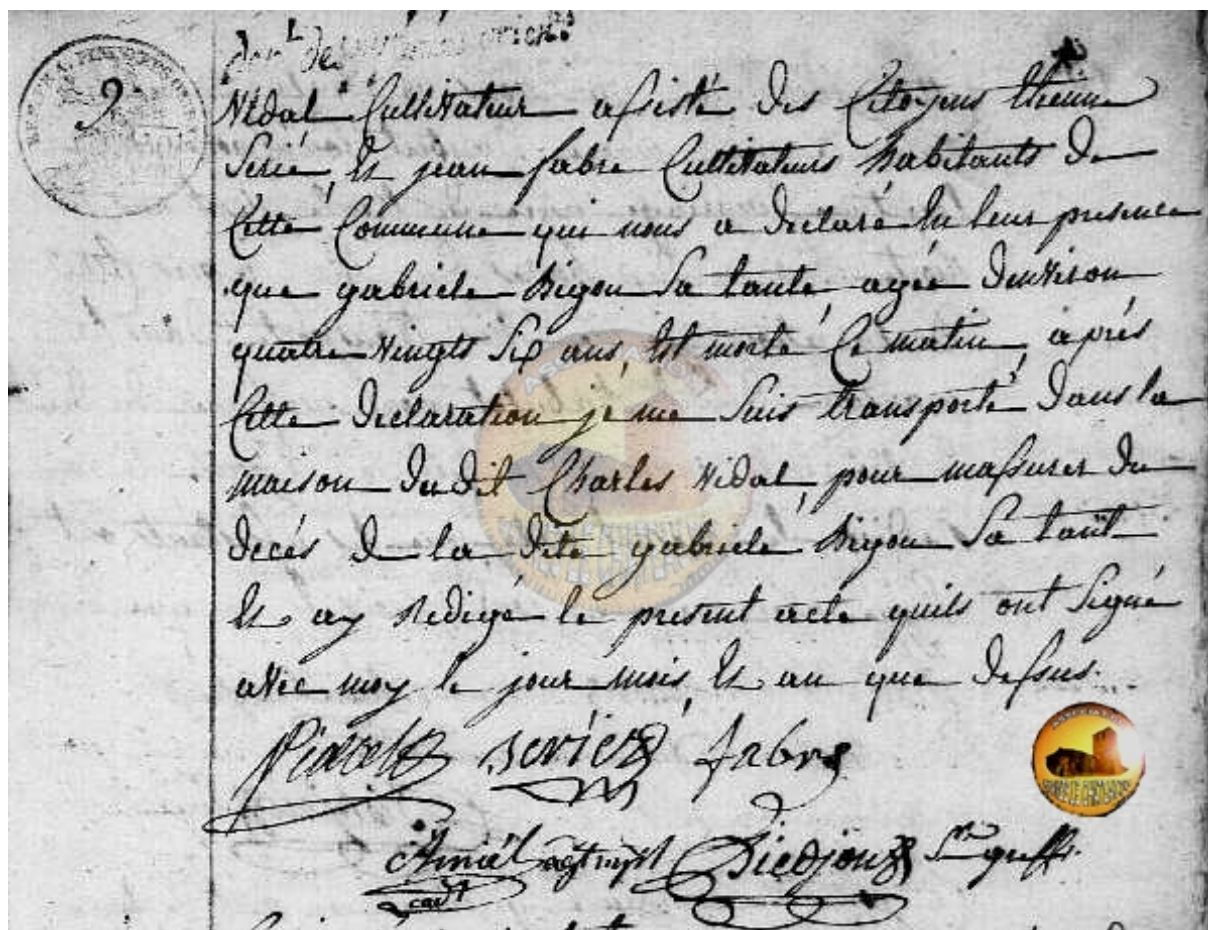 9.
Vidal Cultivateur assisté des Citoyens thienne
Serié, Et jean fabre Cultivateurs habitants de
Cette Commune qui nous a declaré En leur presence
que gabriele Bigou Sa tante, agée denviron
quatre vingts Six ans Est morte Ce matin, après
Cette declaration je me Suis transporté dans la
maison du dit Charles Vidal, pour massurer du
decés de la dite gabriele Bigou Sa tante
Et ay redigé le present acte quils ont Signé
avec moy le jour mois, Et an que dessus.
Vidal Seriés fabre
Amiel agt mpl Piedjouz S.re greff.
cadt
ASSOCIATION